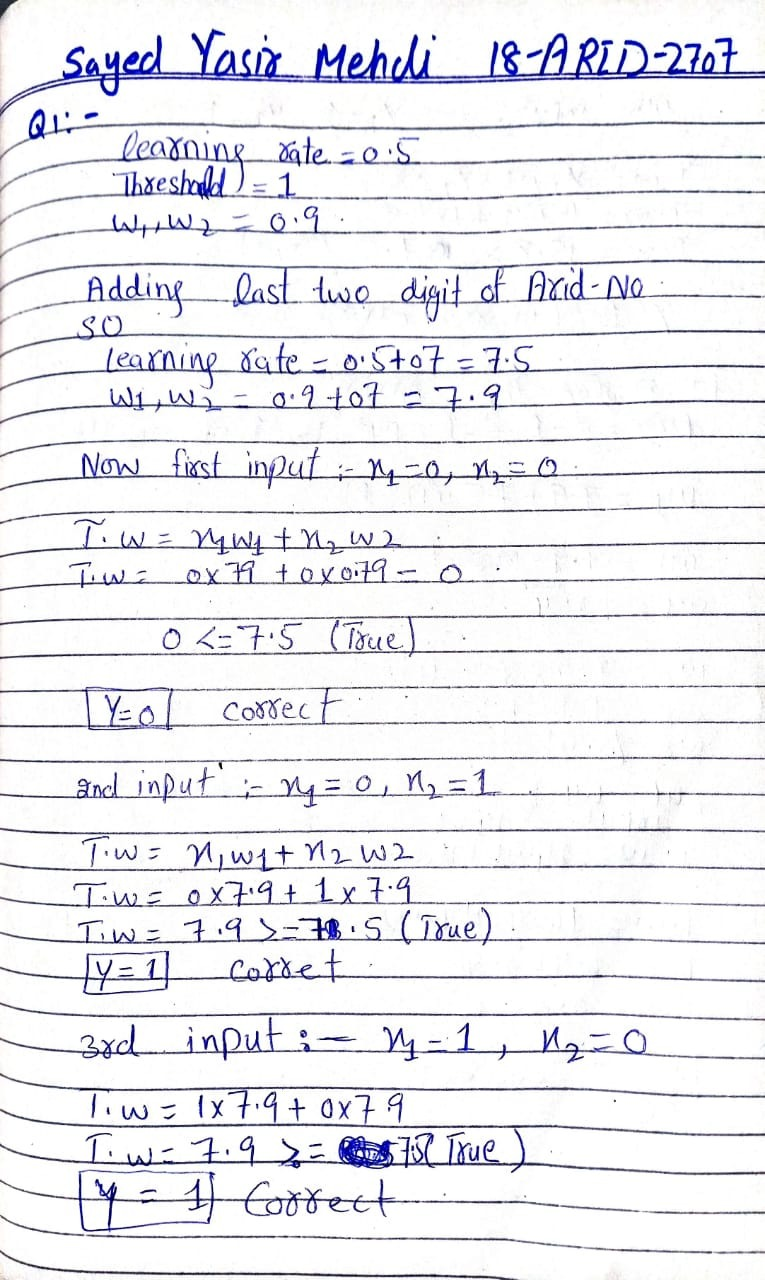 Sayed Yasir Mehdi 18-ARID-2707
Q1:-
learning rate = 0.5
Threshold = 1
W1, W2 = 0.9
Adding last two digit of Arid-No
SO
learning rate = 0.5+07 = 7.5
W1, W2 = 0.9+07 = 7.9
Now first input :- x1=0, x2=0
T.w = x1w1 + x2w2
T.w = 0x79 + 0x0.79 = 0
0 <= 7.5 (True)
Y=0 correct
2nd input :- x1 = 0, x2 = 1
T.w = x1w1 + x2w2
T.w = 0x7.9 + 1x7.9
T.w = 7.9 >= 7.5 (True)
Y=1 Corret
3rd input :- x1 = 1, x2 = 0
T.w = 1x7.9 + 0x7 9
T.w = 7.9 >= 75 (True)
y = 1 Correct